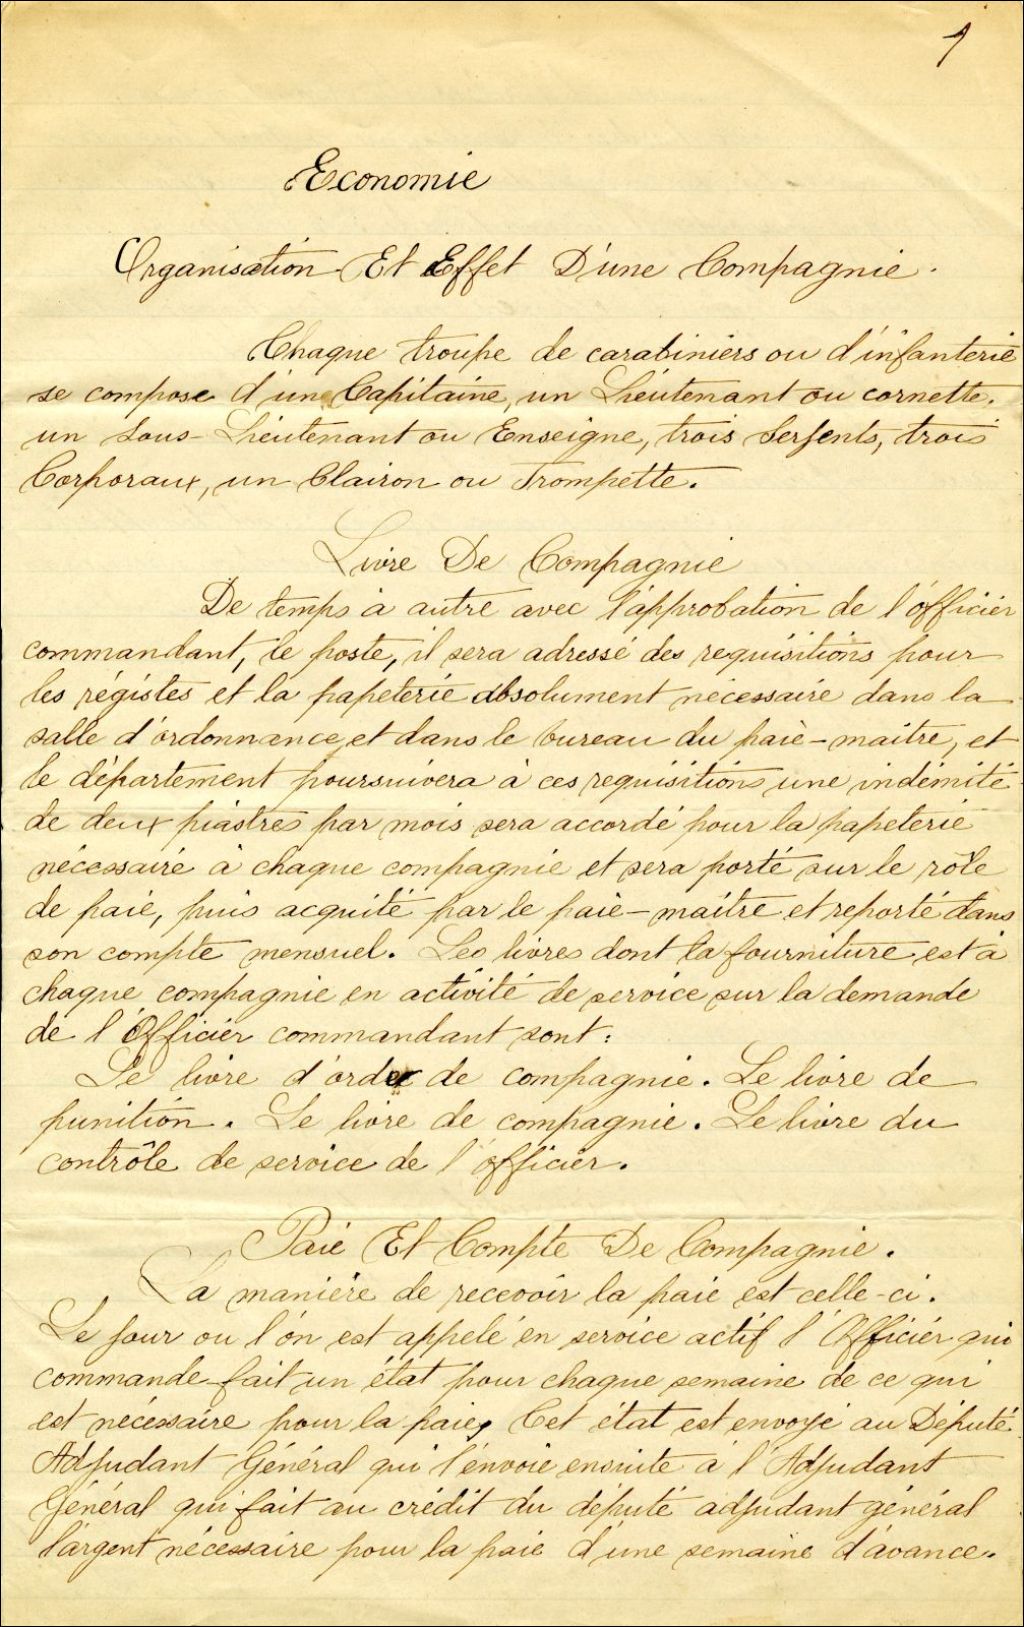 1
Economie
Organisation Et Effet D'une Compagnie.
Chaque troupe de carabiniers ou d'infanterie
se compose d'un Capitaine, un Lieutenant ou cornette.
un Sous-Lieutenant ou Enseigne, trois Serjents, trois
Corporaux, un Clairon ou Trompette.
Livre De Compagnie
De temps à autre avec l'approbation de l'officier
commandant, le poste, il sera adressé des requisitions pour
les régistes et la papeterie absolument nécessaire dans la
salle d'ordonnance, et dans le bureau du paie-maitre, et
le département poursuivera à ces requisitions une indémité
de deux piastres par mois sera accordé pour la papeterie
nécessaire à chaque compagnie et sera porté sur le rôle
de paie, puis acquité par le paie-maitre et reporté dans
son compte mensuel. Les livres dont la fourniture est à
chaque compagnie en activité de service sur la demande
de l'Officier commandant sont:
Le livre d'order de compagnie. Le livre de
punition. Le livre de compagnie. Le livre du
contrôle de service de l'officier.
Paie Et Compte De Compagnie.
La manière de recevoir la paie est celle-ci.
Le jour ou l'on est appelé en service actif l'Officier qui
commande fait un état pour chaque semaine de ce qui
est nécessaire pour la paie, Cet état est envoyé au Député
Adjudant Général qui l'envoie ensuite à l'Adjudant
Général qui fait au crédit du député adjudant général
l'argent nécessaire pour la paie d'une semaine d'avance.